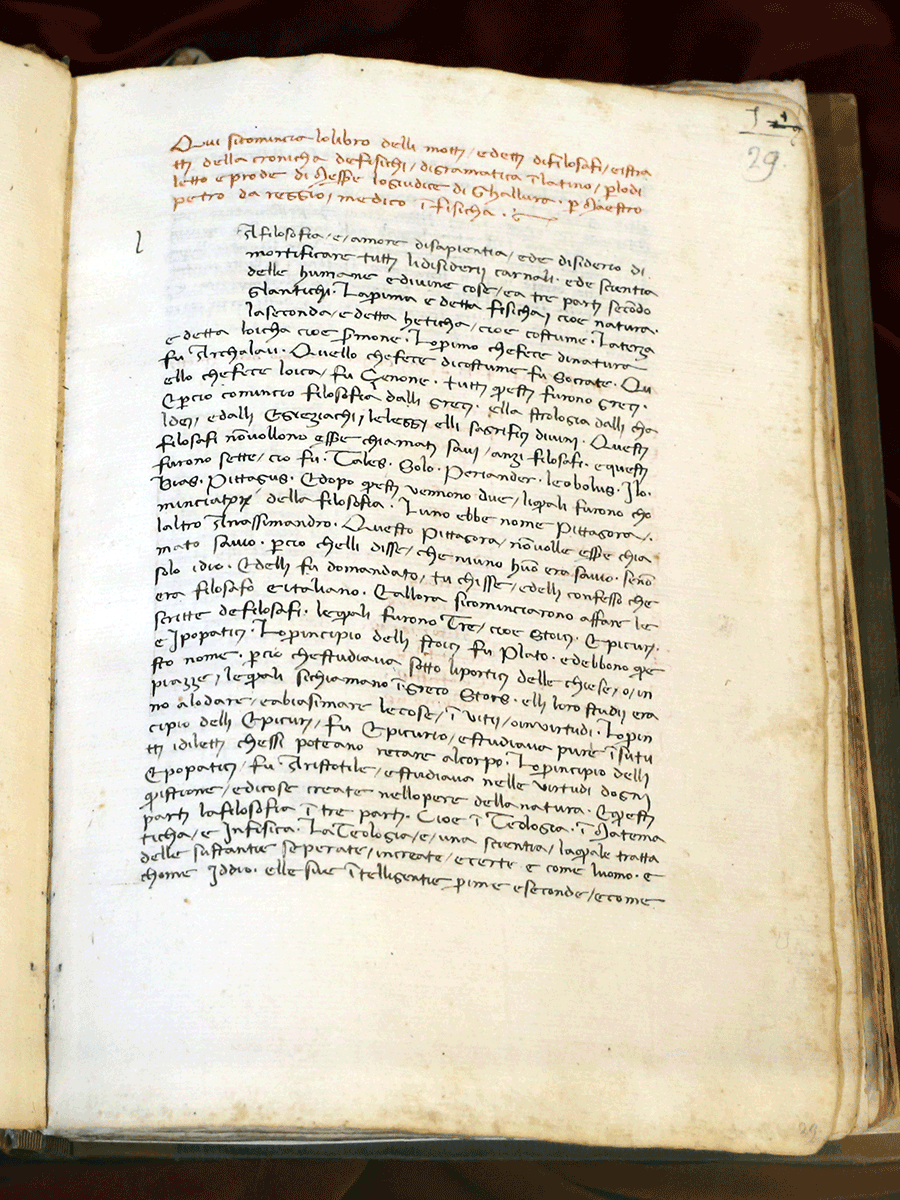 29.
Qui sicomincia lolibro delli motti / e detti di filosafi / e istra
tti della cronicha defisichi / digramatica ī latino / p lodi
letto e prode di Messe logiudice di Ghallura · p Maestro
petro da reggio / medico ī fisicha ·
l
A filosofia / e / amore disapientia / ede disiderio di
mortificare tutti lidisiderii carnali · ede scientia
delle humane e divine cose / ea tre parti secōdo
glantichi · La prima e detta fisicha / cioe natura ·
la seconda / e detta heticha / cioe costume · La terza
e detta loicha cioe sermone · Lo primo che fece dinatura
fu Archalau · Quello che fece dicostume fu Socrate · Qu
ello che fece loica / fu Çenone · tutti questi furono greci ·
E percio comincio filosofia dalli greci · ella strologia dalli cha
ldei / e dalli Egieziachi / le leggi elli sagrifici divini · Questi
filosafi nō vollono esse chiamati savi / anzi filosafi · e questi
furono sette / cio fu · Tales · Solo · Periander · Leobolus · Ilo ·
Bias · Pittagus · E dopo questi vennono due / li quali furono cho
minciatori della filosofia · Luno ebbe nome Pittagora / ·
laltro Anassimandro · Questo Pittagora / nō volle esse chia
mato savio · percio chelli disse / che niuno huō era savio · senō
solo idio · Edelli fu domandato / tu chisse / edelli confesso che
era filosafo e italiano · E allora sicominciarono affare le
scritte defilosafi · le quali furono Tre / cioe Stoici · Epicuri ·
e Ipopatici · Lo principio delli stoici fu Plato · e debbono que
sto nome · percio che studiava sotto liportici delle chiese / o / in
piazze / le quali sichiamano ī greco Stors · elli loro studii era
no alodare / e abiasimare le cose / ī vitii / o in virtudi · Lo prin
cipio delli Epicuri / fu Epicurio / e studiava pure ī su tu
tti idiletti chessi poteano recare al corpo · Lo principio delli
Epopatici / fu Aristotile / e studiava nelle virtudi dogni
quistione / e dicose create nellopere della natura · Questi
parti la filosofia ī tre parti · Cioe ī Teologia · ī Matema
ticha / e in fisica · La Teologia / e / una scientia / la quale tratta
delle sustantie seperate / increate / e certe e come luomo · e
chome Iddio · elle sue ītelligentie prime e seconde / e come
29